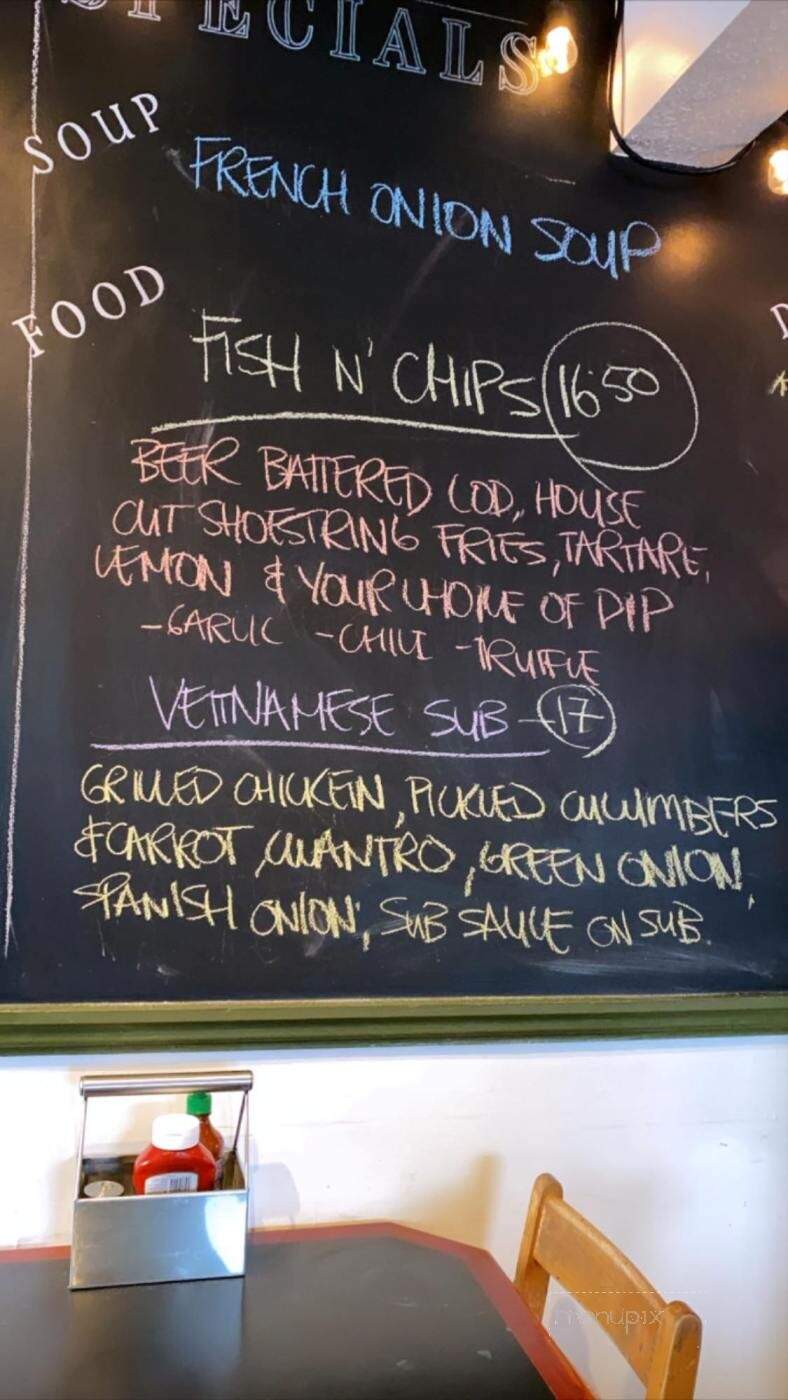 SPECIALS
SOUP
FRENCH ONION SOUP
FOOD
FISH N' CHIPS 16.50
BEER BATTERED COD, HOUSE
CUT SHOESTRING FRIES, TARTARE,
LEMON & YOUR CHOICE OF DIP
-GARLIC -CHILI -TRUFFLE
VEITNAMESE SUB - 17
GRILLED CHICKEN, PICKLED CUCUMBERS
& CARROT, CILANTRO, GREEN ONION,
SPANISH ONION, SUB SAUCE ON SUB.
menupix